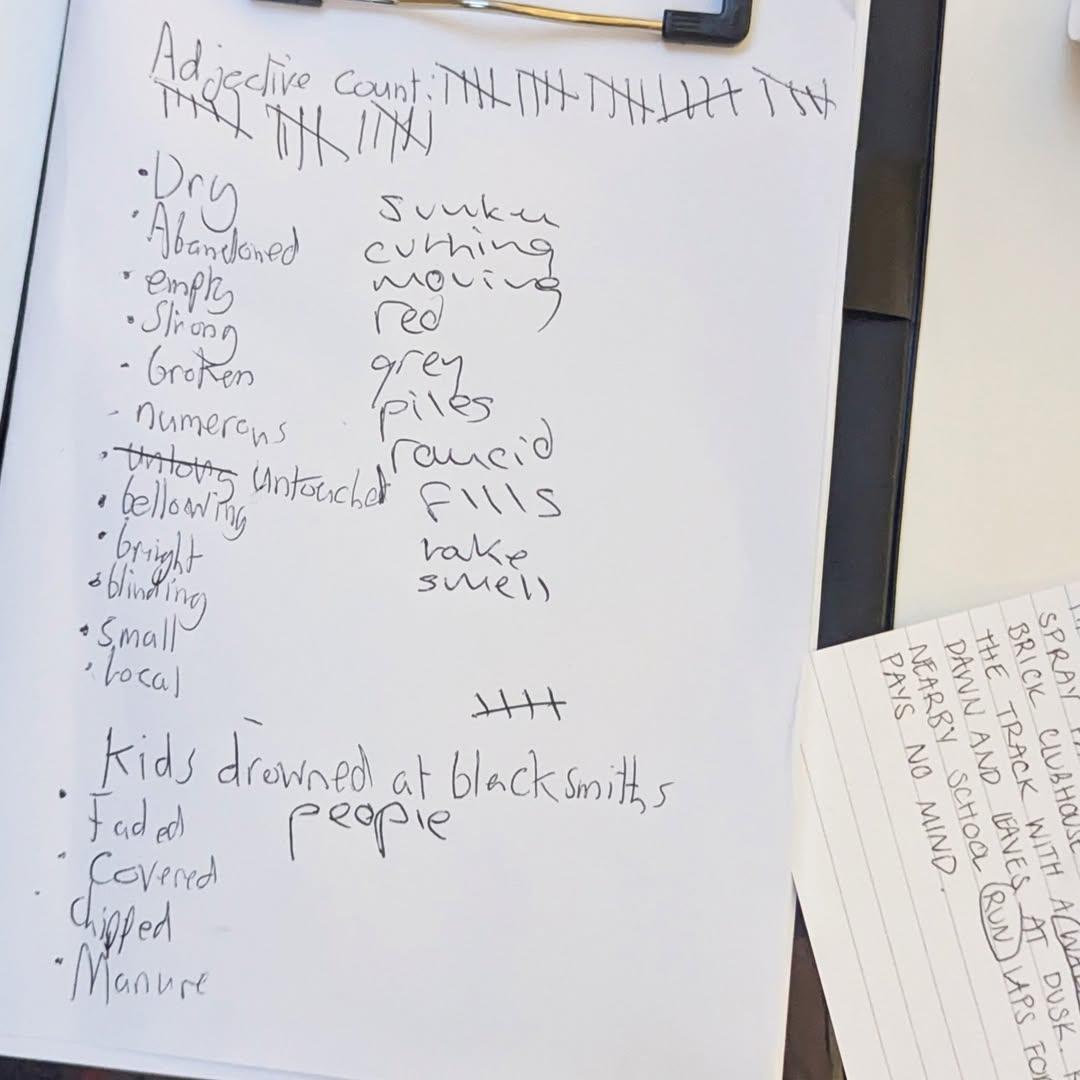 Adjective count:
• Dry
• Abandoned
• empty
• Strong
- broken
- numerous
• Untouched
• bellowing
• bright
• blinding
• Small
• Local
sunken
cutting
moving
red
grey
piles
rancid
fills
rake
smell
Kids drowned at blacksmiths
people
• Faded
• Covered
• Chipped
• Manure
SPRAY
BRICK CLUBHOUSE
THE TRACK WITH A
DAWN AND LEAVES AT DUSK.
NEARBY SCHOOL RUN LAPS
PAYS NO MIND.